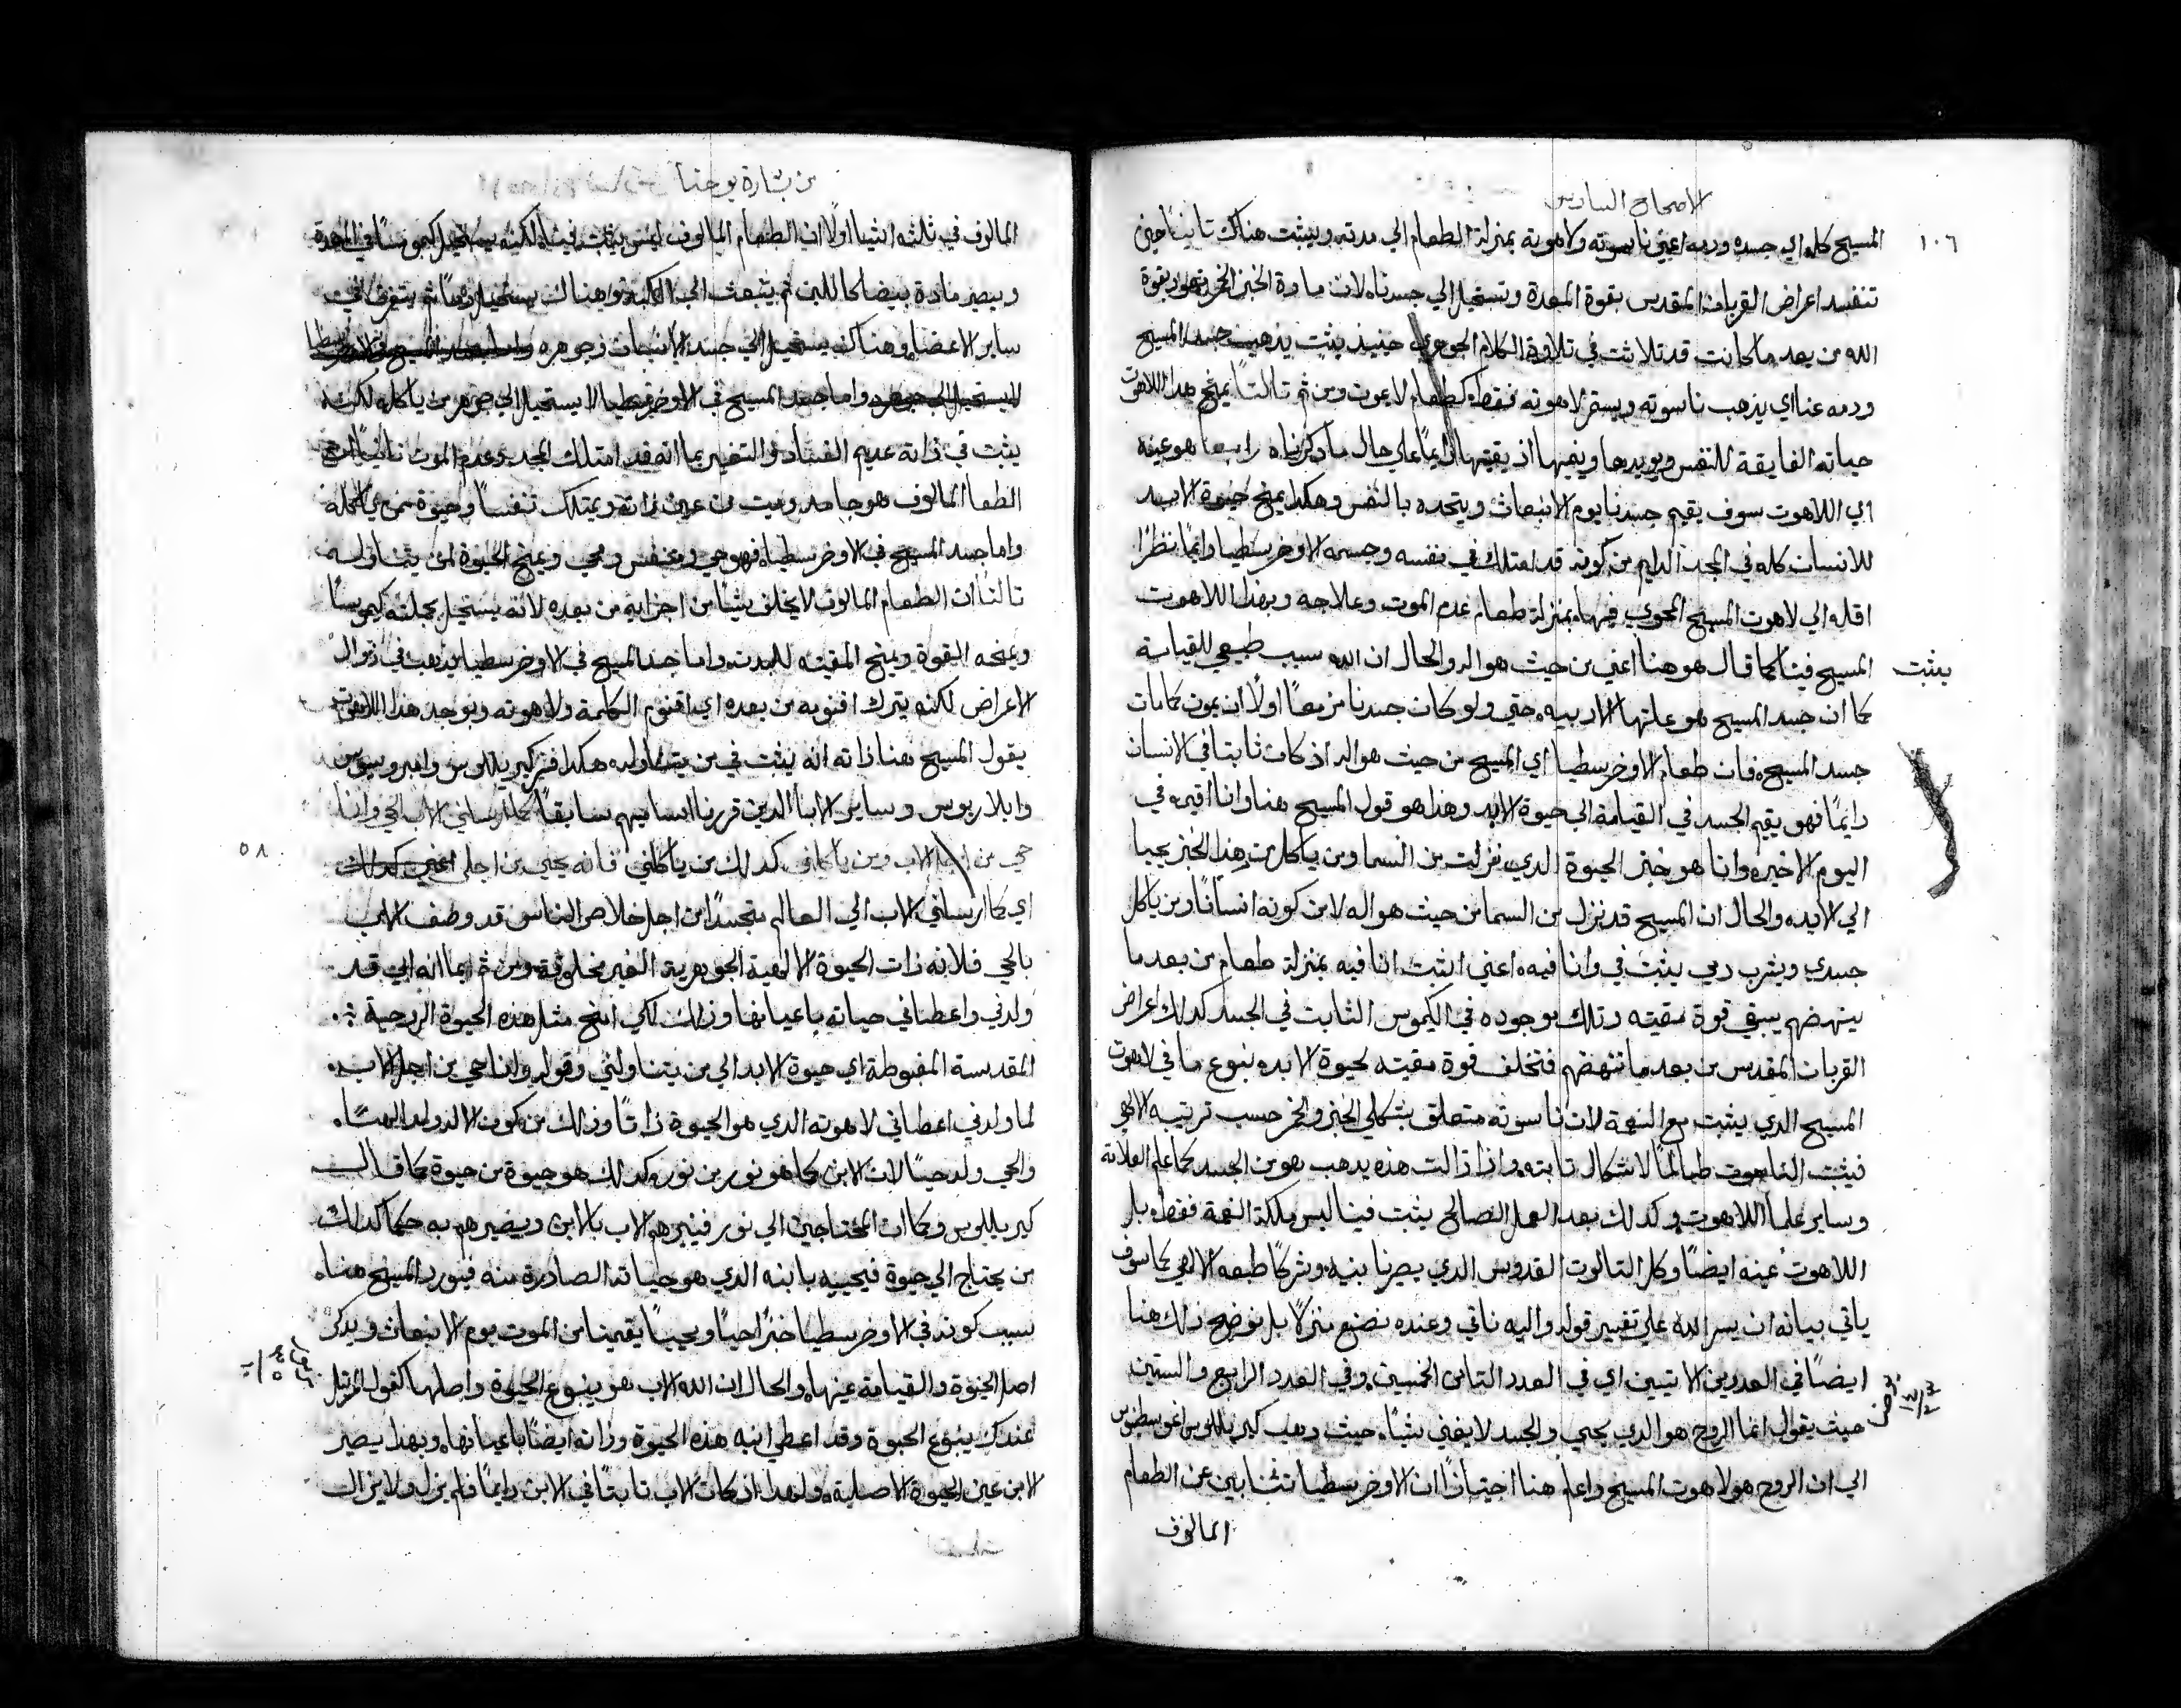 الاصحاح السادس
١٠٦
المسيح كله اي جسده ودمه اعني ناسوته ولاهوته بمنزلة الطعام الي مدته ويثبت هناك تانيا حين
تنفسد اعراض القربان المقدس بقوة المعدة وتستحيل الي جسدنا لان مادة الخبز الخمر تعود بقوة
الله من بعد ما كانت قد تلاشت في تلاوة الكلام الجوهري حينيذ يثبت يذهب جسد المسيح
ودمه عنا اي يذهب ناسوته ويستمر لاهوته فقط كطعام لا يموت ومن ثم تالتا يمنح هذا اللاهوت
حياته الفايقة للنفس ويويدها وينميها اذ يقيتها دايما علي حال ما دكرناه رابعا هو عينه
اي اللاهوت سوف يقيم جسدنا يوم الانبعاث ويتحده بالنفس وهكدا يمنح حيوة الابد
للانسان كله في المجد الدايم من كونه قد امتلك في نفسه وجسمه الاوخرسطيا دايما نظرا
اقله الي لاهوت المسيح المحوي فيها بمنزلة طعام عدم الموت وعلاجه وبهذا اللاهوت
يثبت
المسيح فينا كما قال هو هنا اعني من حيث هو اله والحال ان الله سبب طبيعي للقيامة
كما ان جسد المسيح هو علتها الادبيه حتي ولو كان جسدنا مزمعا اولا ان يموت كما مات
جسد المسيح فان طعام الاوخرسطيا اي المسيح من حيث هو اله اذ كان ثابتا في الانسان
دايما فهو يقيم الجسد في القيامة الي حيوة الابد وهذا هو قول المسيح هنا وانا اقيمه في
اليوم الاخير وانا هو خبز الحيوة الدي نزلت من السما ومن ياكل من هذا الخبز يحيا
الي الابد والحال ان المسيح قد نزل من السما من حيث هو اله لا من كونه انسانا ومن ياكل
جسدي ويشرب دمي يثبت في وانا فيه اعني اثبت انا فيه بمنزلة طعام من بعد ما
ينهضم يبقي قوة مقيته وتلك موجوده في الكيموس الثابت في الجسد كدلك اعراض
القربان المقدس من بعد ما تنهضم فتخلف قوة مقيته لحيوة الابد بنوع ما في لاهوت
المسيح الدي يثبت مع النعمة لان ناسوته متعلق بشكلي الخبز والخمر حسب ترتيبه الالهي
فيثبت الناسوت طالما الاشكال تابته واذا زالت هذه يدهب هو من الجسد كما علم العلامة
وساير علما اللاهوت وكدلك بعد العمل الصالح يثبت فينا ليس ملكة النعمة فقط بل
اللاهوت عينه ايضا وكل التالوت القدوس الدي يصيرنا بنيه وشركا طبعه الالهي كما سوف
ياتي بيانه ان يسر الله علي تفسير قوله واليه ناتي وعنده نصنع منزلا بل نوضح ذلك هنا
ايضا في العددين الاتيين اي في العدد التامن الخمسين وفي العدد الرابع والستين
حيث يقول انما الروح هو الدي يحيي والجسد لا يغني شيا حيث دهب كيرللوس اغوسطينوس
الي ان الروح هو لاهوت المسيح واعلم هنا اجتيازا ان الاوخرسطيا تتباين عن الطعام
المالوف
من بشارة يوحنا
المالوف في ثلثه اشيا اولا ان الطعام المالوف ليس يثبت فينا لكنه يستحيل كيموسا في المعدة
ويصير مادة بيضا كاللبن ثم ينبعث الي الكبد وهناك يستحيل دما ثم يتفرق في
ساير الاعضا وهناك يستحيل الي جسد الانسان وجوهره
واما جسد المسيح في الاوخرسطيا لا يستحيل الي جوهر من ياكله لكنه
يثبت في ذاته عديم الفساد والتغير بما انه قد امتلك المجد وعدم الموت تانيا ان
الطعام المالوف هو جامد وميت من عين ذاته ويمتلك تنفسا وحيوة ممن ياكله
واما جسد المسيح في الاوخرسطيا فهو حي ومتنفس ومحيي ويمنح الحيوة لمن يتناوله
تالتا ان الطعام المالوف لا يخلف شيا من اجزايه من بعده لانه يستحيل بجملته كيموسا
ويمنحه القوة ويمنح المقيته للبدن واما جسد المسيح في الاوخرسطيا يدهب في زوال
الاعراض لكنه يترك اقنومه من بعده اي اقنوم الكلمة ولاهوته ونوجد هذا اللاهوت
يقول المسيح هنا ذاته انه يثبت في من يتناوله هكدا فسر كيرللوس وامبروسيوس
وايلاريوس وساير الابا الدين قررنا اساميهم سابقا كما ارسلني الاب الحي وانا
٥٨
حي من اجل الاب ومن ياكلني كدلك من ياكلني فانه يحيي من اجلي اعني كدلك
اي كما ارسلني الاب الي العالم متجسدا من اجل خلاص الناس قد وصف الاب
بالحي فلانه ذات الحيوة الالهية الجوهرية الغير مخلوقة ومن ثم بما انه ابي قد
ولدني واعطاني حياته باعيانها وذلك لكي امنح مثل هذه الحيوة الروحية
المقدسة المغبوطة اي حيوة الابد الي من يتناولني وقوله وانا حي من اجل الاب
لما ولدني اعطاني لاهوته الدي هو الحيوة ذاتا وذلك من كون الاله ولد الها
والحي ولد حيا لان الابن كما هو نور من نور وكدلك هو حيوة من حيوة كما قال
كيرللوس وكما ان المحتاجين الي نور فينيرهم الاب بالابن ويصيرهم به حكما كدلك
من يحتاج الي حيوة فيحييه بابنه الدي هو حياته الصادرة منه فيورد المسيح هنا
سبب كونه في الاوخرسطيا خبزا حيا ويحيي يقيمنا من الموت يوم الانبعاث ويدكر
اصل الحيوة والقيامة عينها والحال ان الله الاب هو ينبوع الحيوة واصلها كقول المرتل
عندك ينبوع الحيوة وقد اعطي ابنه هذه الحيوة وذاته ايضا باعيانها وبهذا يصير
الابن عين الحيوة الاصلية ولهدا اذ كان الاب تابتا في الابن دايما فلم يزل ولا يزال